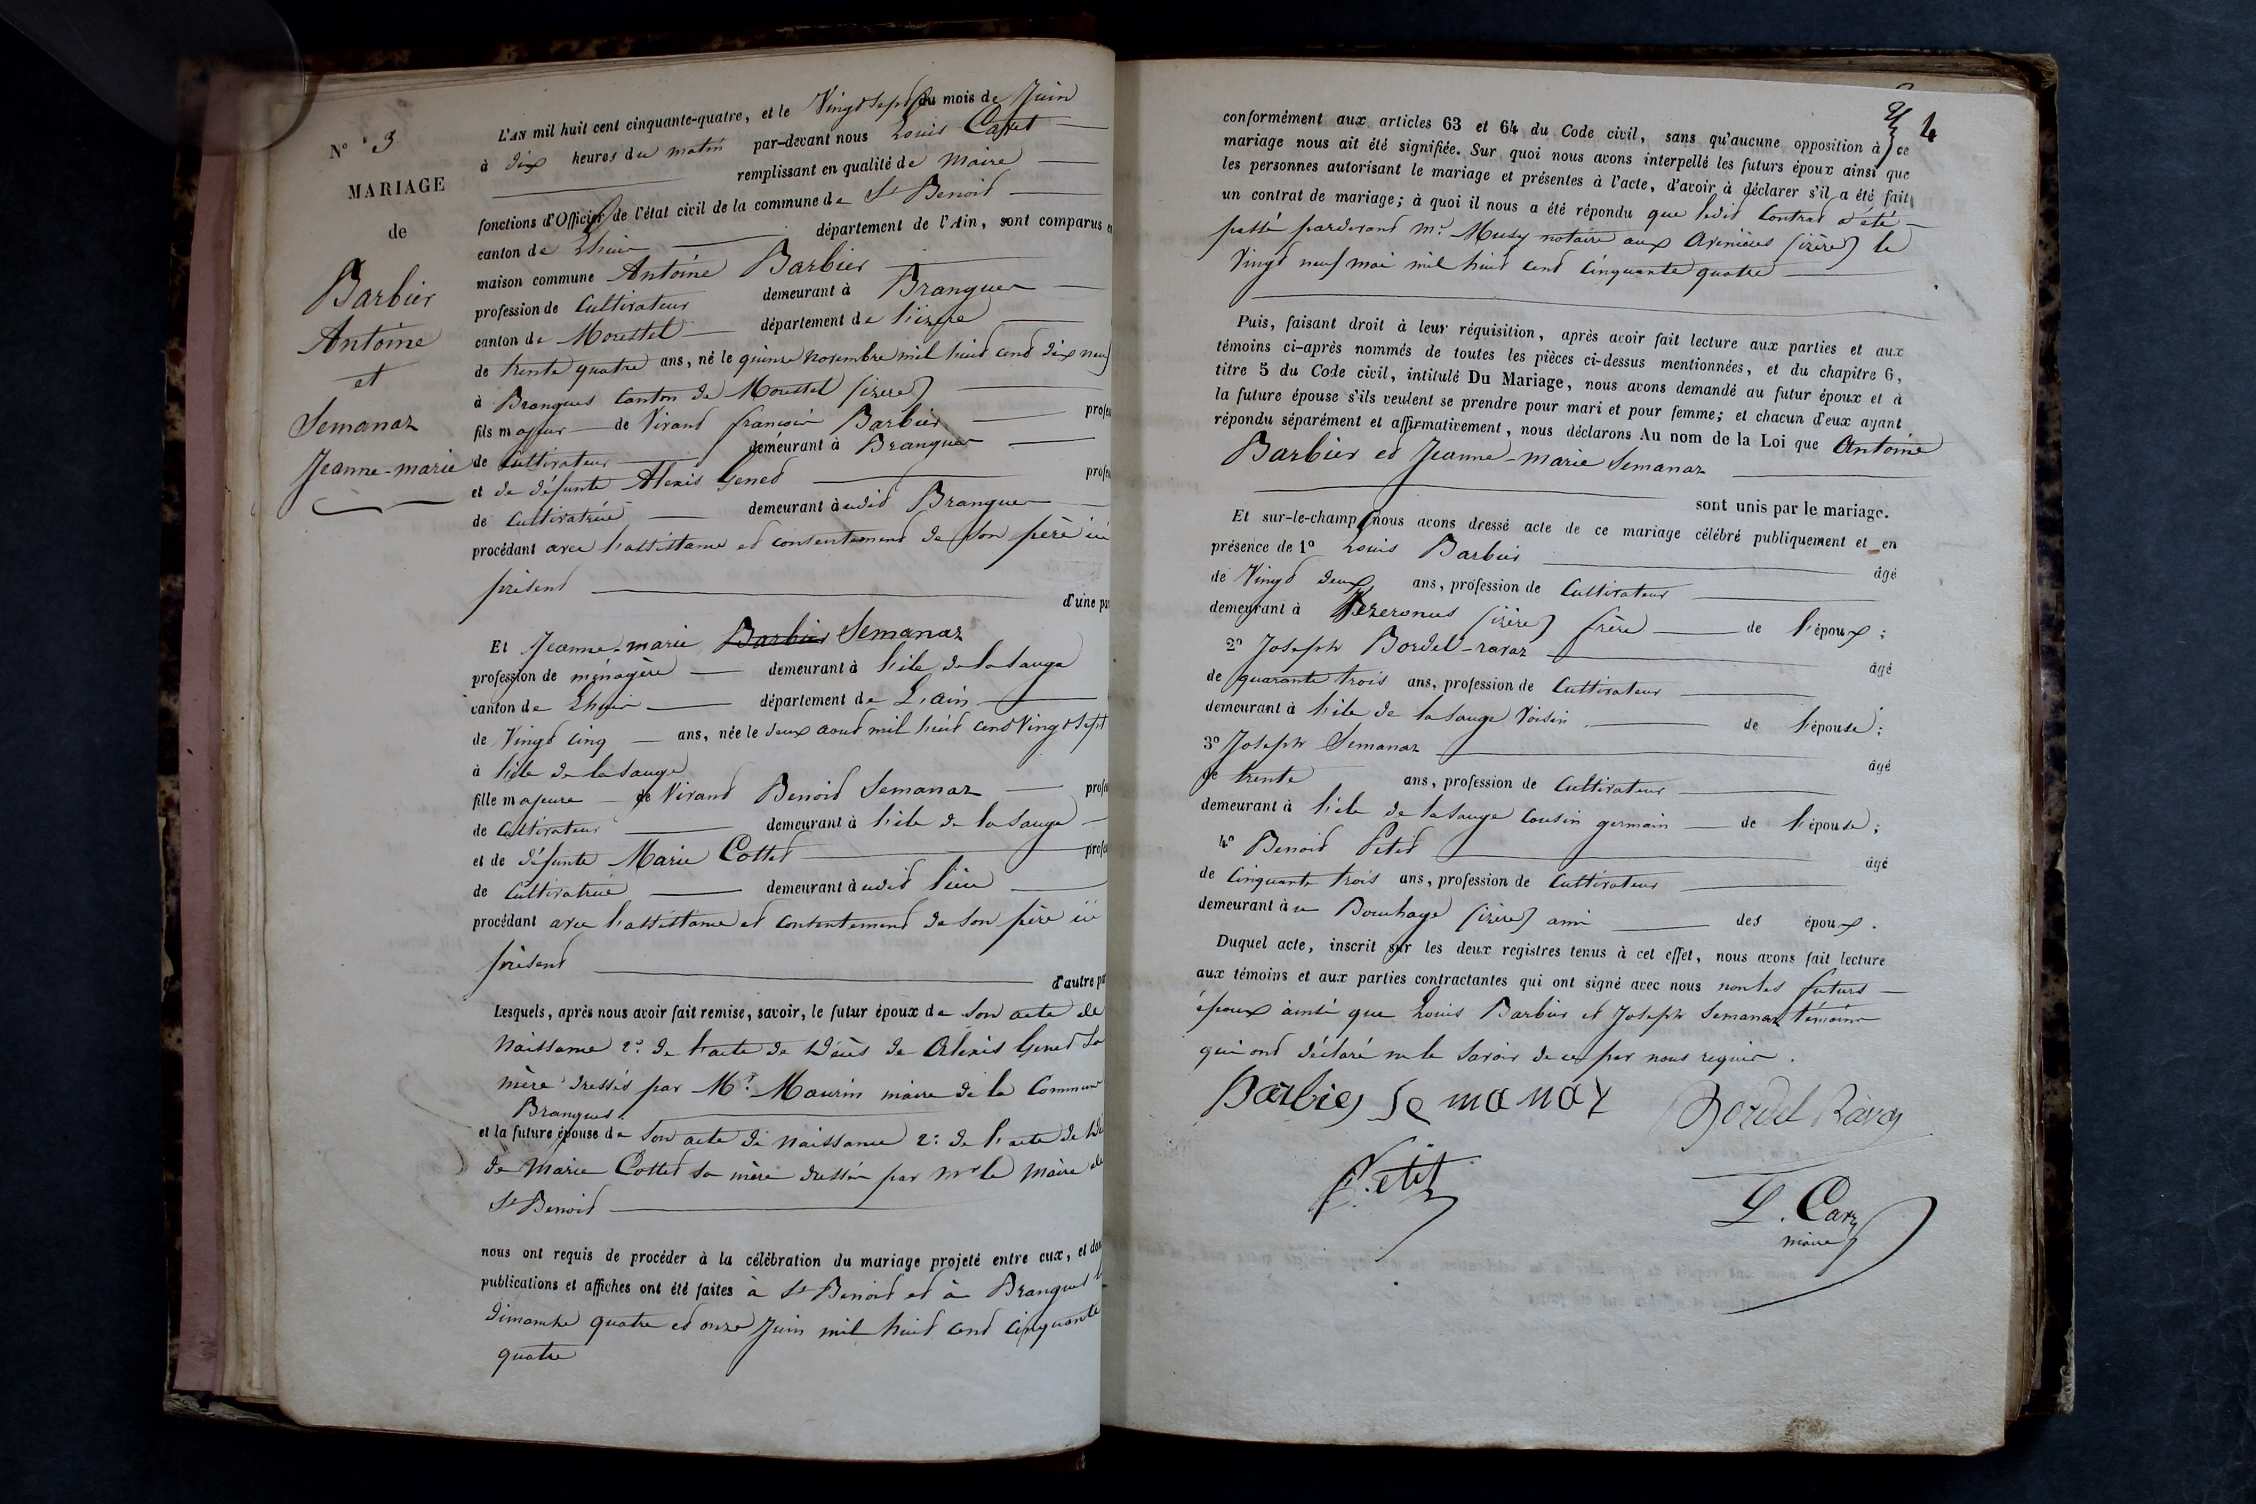 N° 3
MARIAGE
de
Barbier
Antoine
et
Semanaz
Jeanne-marie
L'AN mil huit cent cinquante-quatre, et le Vingt sept du mois de Juin
à dix heures du matin par-devant nous Louis
remplissant en qualité de Maire
fonctions d'Officier de l'état civil de la commune de St Benoit
canton de Lhuis département de l'Ain, sont comparus en
maison commune Antoine Barbier
profession de Cultivateur demeurant à Brangues
canton de Morestel département de l'izère
de trente quatre ans, né le quinze novembre mil huit cent dix neuf
à Brangues Canton de Morestel (izère)
fils majeur de Vivant françois Barbier profes
de Cultivateur demeurant à Brangues
et de défunte Alexis Genet profes
de Cultivatrice demeurant audit Brangues
procédant avec l'assistance et consentement de son père ici
présent
d'une par
Et Jeanne-marie Barbier Semanaz
profession de ménagère demeurant à l'ile de la Sauge
canton de Lhuis département de L'ain
de Vingt cinq ans, née le deux aout mil huit cent Vingt Sept
à l'ile de la Sauge
fille majeure de Vivant Benoit Semanaz profes
de Cultivateur demeurant à l'ile de la Sauge
et de défunte Marie Cottet profes
de Cultivatrice demeurant audit lieu
procédant avec l'assistance et consentement de son père ici
présent
d'autre par
Lesquels, après nous avoir fait remise, savoir, le futur époux de son acte de
Naissance 2° de l'acte de Décès de Alexis Genet sa
mère dressés par Mr. Maurin maire de la Commune
Brangues
et la future épouse de son acte de naissance 2° de l'acte de Dé
de Marie Cottet sa mère dressée par Mr le Maire de
St Benoit
nous ont requis de procéder à la célébration du mariage projeté entre eux, et dont
publications et affiches ont été faites à St Benoit et à Brangues le
dimanche quatre et onze Juin mil huit cent cinquante
quatre
4
conformément aux articles 63 et 64 du Code civil, sans qu'aucune opposition à ce
mariage nous ait été signifiée. Sur quoi nous avons interpellé les futurs époux ainsi que
les personnes autorisant le mariage et présentes à l'acte, d'avoir à déclarer s'il a été fait
un contrat de mariage; à quoi il nous a été répondu que ledit Contrat a été
passé pardevant Mr. Musy notaire aux Avenières (izère) le
Vingt neuf mai mil huit cent Cinquante quatre
Puis, faisant droit à leur réquisition, après avoir fait lecture aux parties et aux
témoins ci-après nommés de toutes les pièces ci-dessus mentionnées, et du chapitre 6,
titre 5 du Code civil, intitulé Du Mariage, nous avons demandé au futur époux et à
la future épouse s'ils veulent se prendre pour mari et pour femme; et chacun d'eux ayant
répondu séparément et affirmativement, nous déclarons Au nom de la Loi que Antoine
Barbier et Jeanne-marie Semanaz
sont unis par le mariage.
Et sur-le-champ nous avons dressé acte de ce mariage célébré publiquement et en
présence de 1° Louis Barbier âgé
de Vingt deux ans, profession de Cultivateur
demeurant à Vezeronces (izère) frère de l'époux;
2° Joseph Bordel-ravaz âgé
de quarante trois ans, profession de Cultivateur
demeurant à l'ile de la Sauge Voisin de l'épouse;
3° Joseph Semanaz âgé
de trente ans, profession de Cultivateur
demeurant à l'ile de la Sauge Cousin germain de l'épouse;
4° Benoit Petit âgé
de Cinquante trois ans, profession de Cultivateur
demeurant à u Bouchage (izère) ami des époux.
Duquel acte, inscrit sur les deux registres tenus à cet effet, nous avons fait lecture
aux témoins et aux parties contractantes qui ont signé avec nous non les futurs
époux ainsi que Louis Barbier et Joseph Semanaz témoins
qui ont déclaré ne le Savoir de ce par nous requis.
Barbier Semanaz Bordel Ravaz
Petit
L. Carz
maire